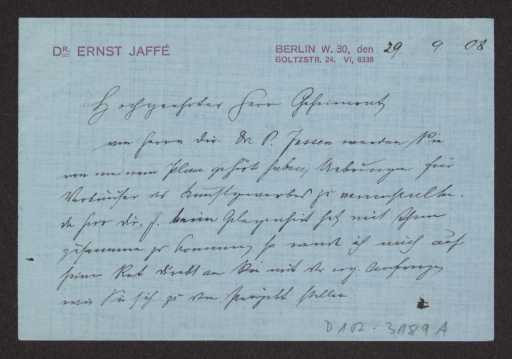 DR. ERNST JAFFÉ
BERLIN W. 30, den 29 9 08
GOLTZSTR. 24. VI, 6339
Hochgeehrter Herr Geheimrat
von Herrn Dir. Dr. P. Jessen werden Sie
von meinem Plan gehört haben, Uebungen für
Verkäufer des Kunstgewerbes zu veranstalten.
da Herr Dir. J. keine Gelegenheit hat mit Ihnen
zusammen zu kommen, so wende ich mich auf
seinen Rat direkt an Sie mit der erg. Anfrage,
wie Sie sich zu dem Projekt stellen
2
D 102-3189 A